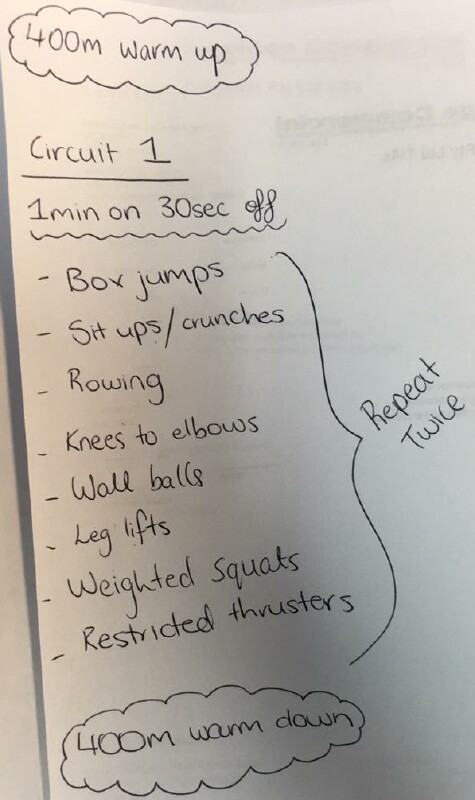 400m warm up
Circuit 1
1min on 30sec off
- Box jumps
- Sit ups/crunches
- Rowing
- Knees to elbows
- Wall balls
- Leg lifts
- Weighted Squats
- Restricted thrusters
Repeat
Twice
400m warm down